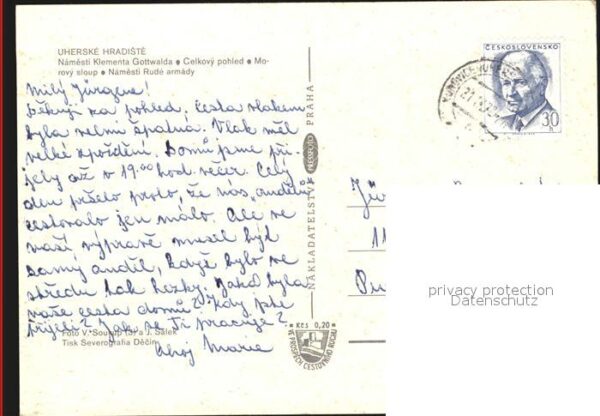 UHERSKÉ HRADIŠTĚ
Náměstí Klementa Gottwalda ● Celkový pohled ● Mo-
rový sloup ● Náměstí Rudé armády
Milý Jürgene!
Děkuji za pohled, cesta vlakem
byla velmi špatná. Vlak měl
velké zpoždění. Domů jsme při-
jely až v 19.00 hod. večer. Celý
den pršelo proto, že nás „andělů“
cestovalo jen málo. Ale ve
vaší výpravě musil být
samý anděl, když bylo ve
středu tak hezky. Jaká byla
vaše cesta domů? Kdy jste
přijeli? Jak se Ti pracuje?
Ahoj Marie
Foto V. Soukup (3) a J. Sálek
Tisk Severografia Děčín
NAKLADATELSTVÍ PRESSFOTO PRAHA
Kčs 0,20
VE PROSPĚCH CESTOVNÍHO RUCHU
ČESKOSLOVENSKO
30
h
Jür
11
privacy protection
Datenschutz